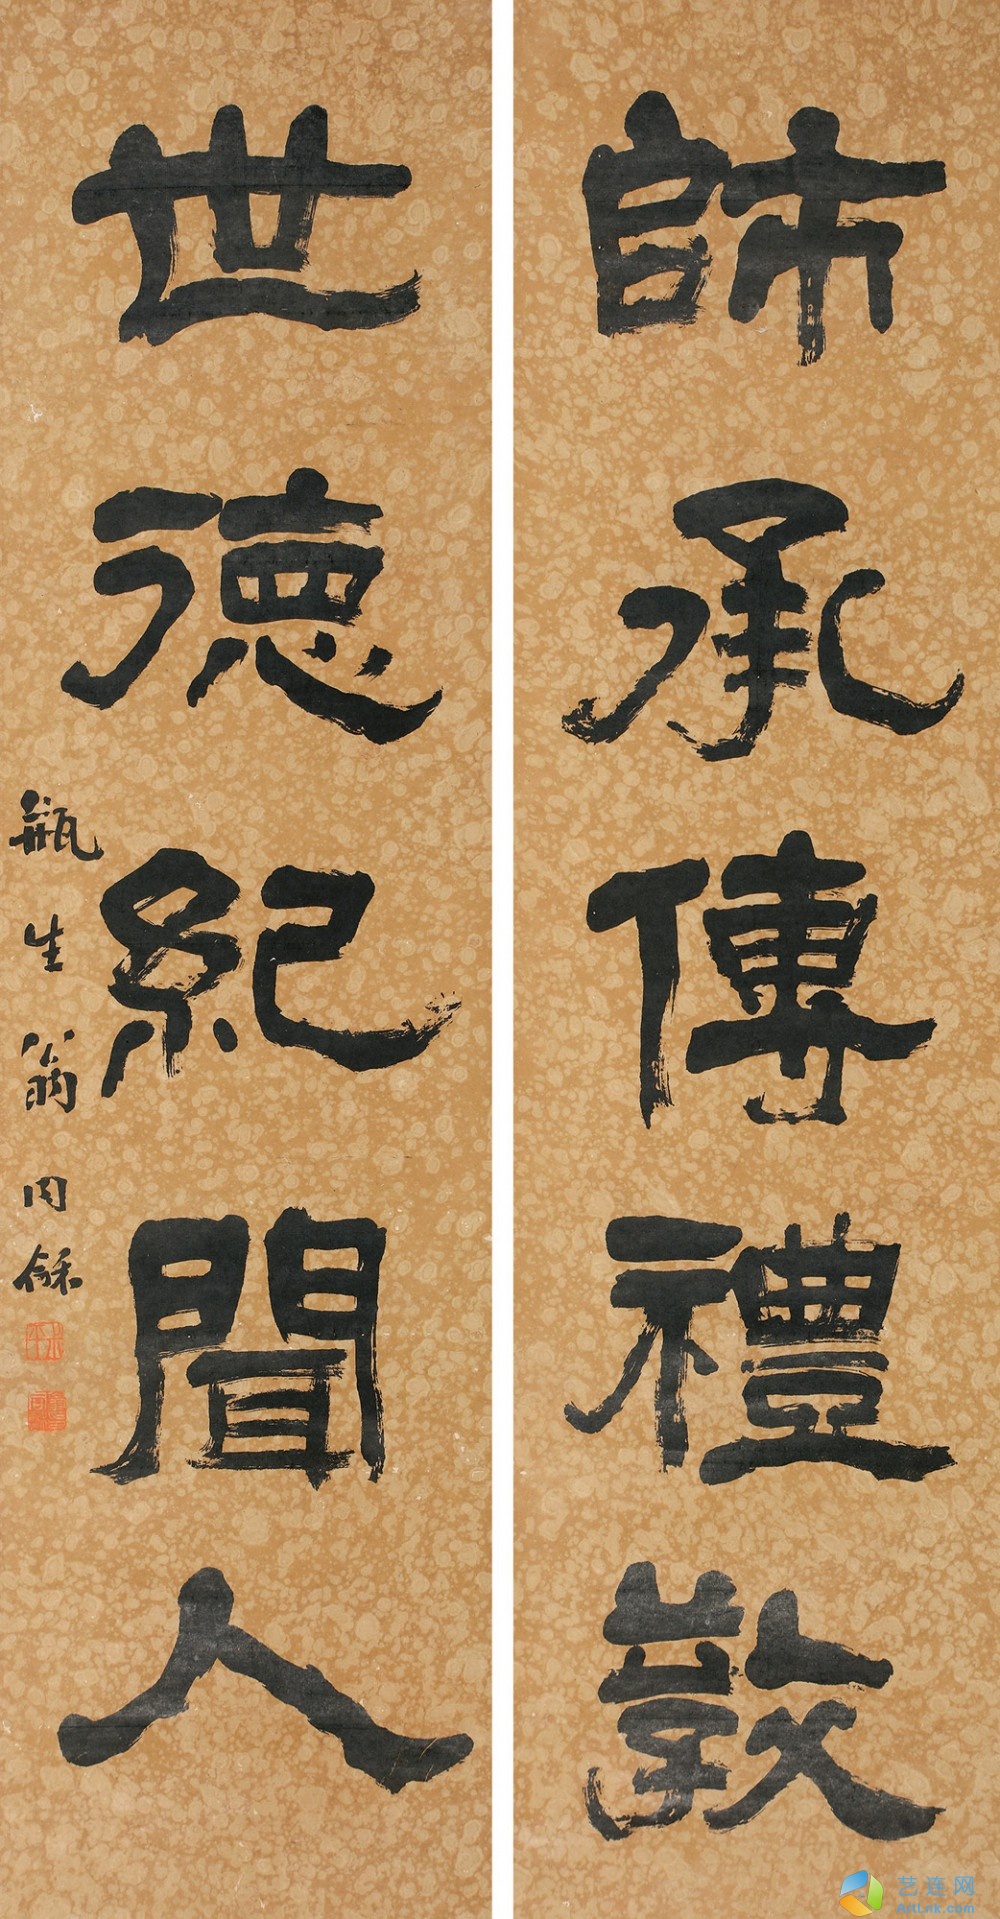 師承傳禮教
世德紀聞人
瓶生翁同龢
艺连网
ArtLnk.com